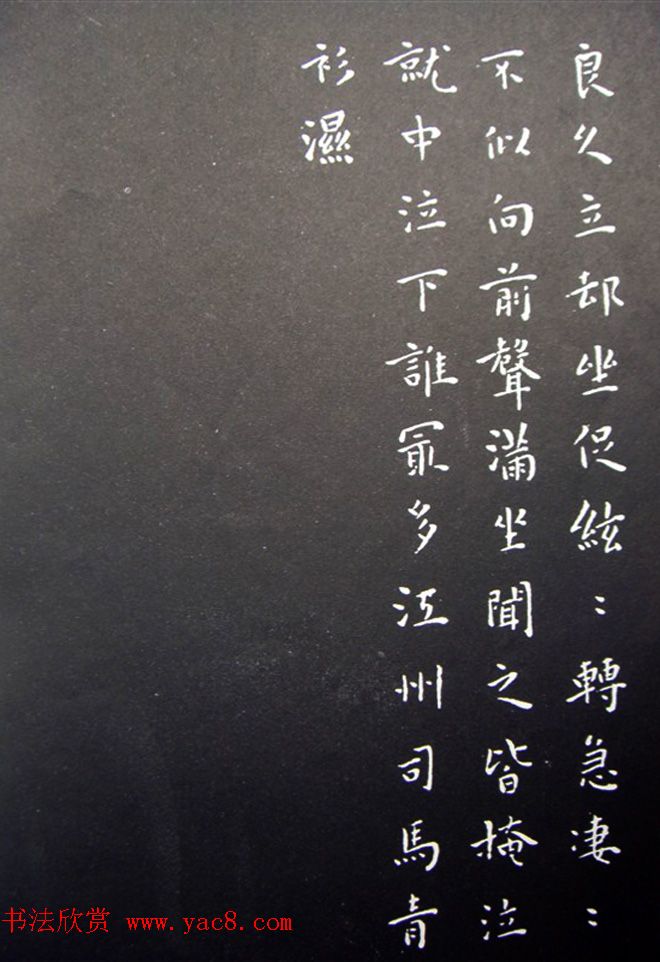 良久立却坐促絃〻轉急凄〻
不似向前聲滿坐聞之皆掩泣
就中泣下誰冣多江州司馬青
衫濕
书法欣赏 www.yac8.com